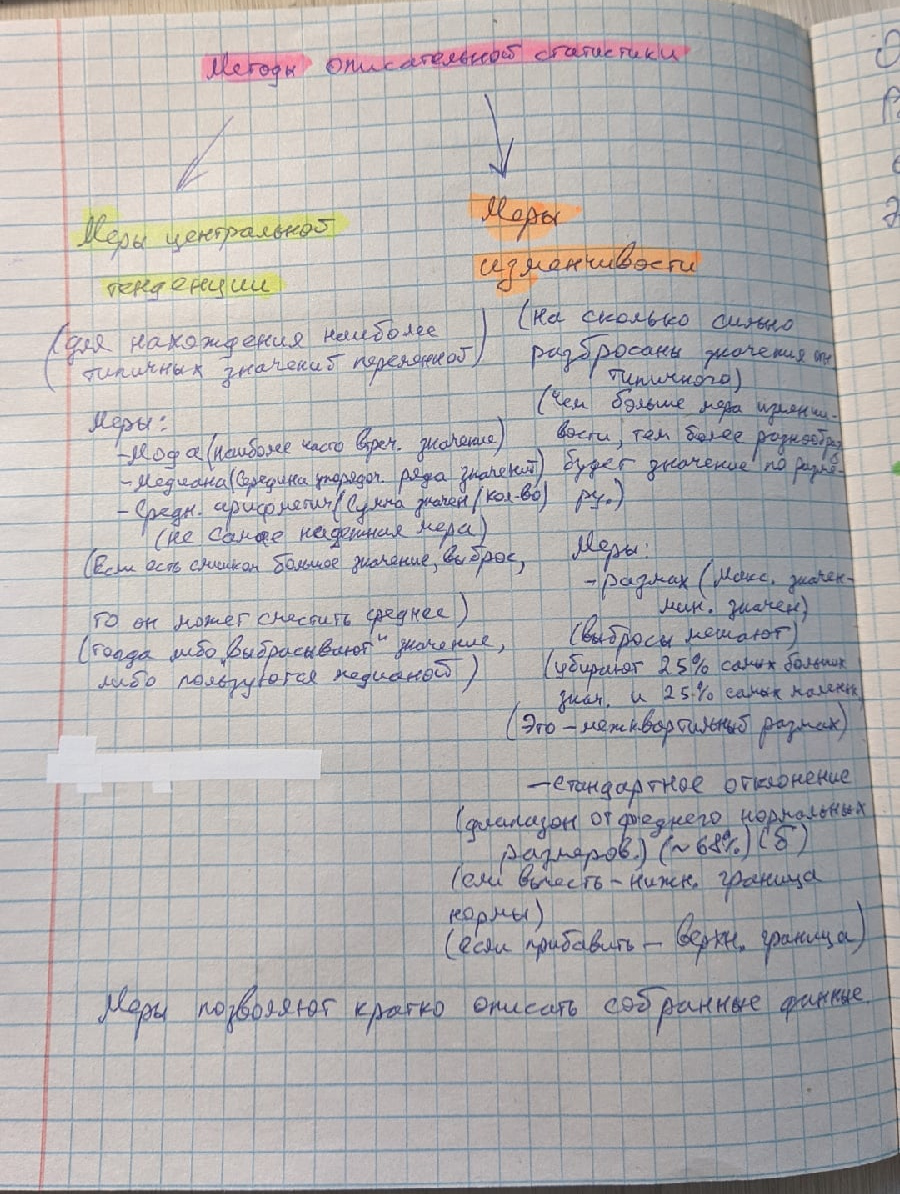 Методы описательной статистики
Меры центральной
тенденции
(для нахождения наиболее
типичных значений переменной)
Меры:
-Мода (наиболее часто встреч. значение)
-Медиана (Середина упорядоч. ряда значений)
-Средн. арифметич (Сумма значен/кол-во)
(не самая надежная мера)
(Если есть слишком большое значение, выброс,
то он может сместить среднее)
(тогда либо „выбрасывают" значение,
либо пользуются медианой)
Меры
изменчивости
(на сколько сильно
разбросаны значения от
типичного)
(Чем больше мера изменчи-
вости, тем более разнообраз
будет значение по разме-
ру.)
Меры:
-размах (Макс. значен-
мин. значен)
(выбросы мешают)
(убирают 25% самых больших
знач. и 25% самых маленьк
(Это - межквартильный размах)
-стандартное отклонение
(диапазон от среднего нормальных
размеров.) (~68%) (б)
(если вычесть - нижн. граница
нормы)
(если прибавить - верхн. граница)
Меры позволяют кратко описать собранные данные.